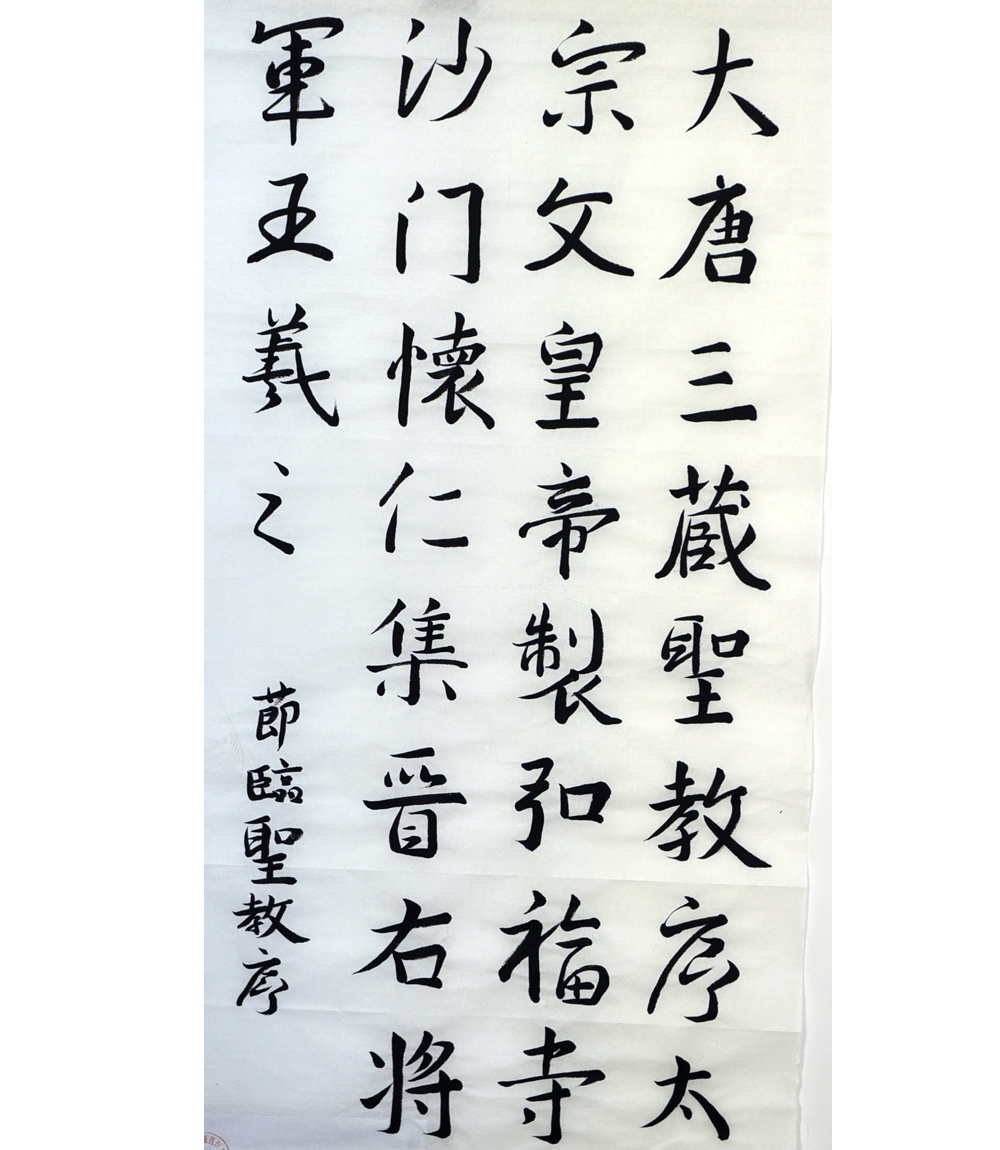 大唐三蔵聖教序太
宗文皇帝製弘福寺
沙门懷仁集晉右将
軍王羲之
節臨聖教序